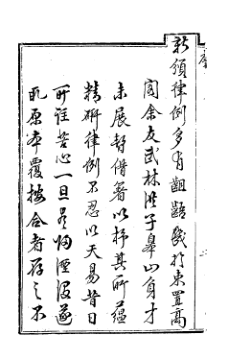 新頒律例多有齟齬幾於束置高
閣余友武林洪子皐山負才
未展暫借箸以抒其所蘊
精研律例不忍以天易昔日
所註苦心一旦盡歸湮沒遂
取原本覆按合者存之不